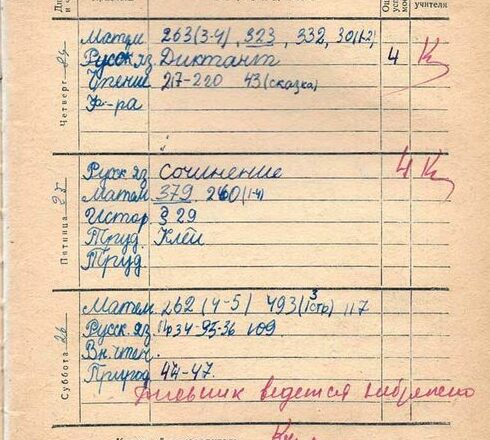 Оц
учителя
Четверг 24
Матем 263(3-4), 323, 332, 30(1-2)
Русск яз. Диктант 4
Чтение 217-220 43(сказка)
Ф-ра
Пятница 25
Русск яз сочинение 4
Матем 379, 260(1-4)
Истор. § 29
Труд. Клей
Труд.
Суббота 26
Матем 262 (4-5) 493(3 1 стб) 117
Русск. яз. 34-93-36 109
Вн. чтен.
Природ 44-47.
Дневник ведется небрежно